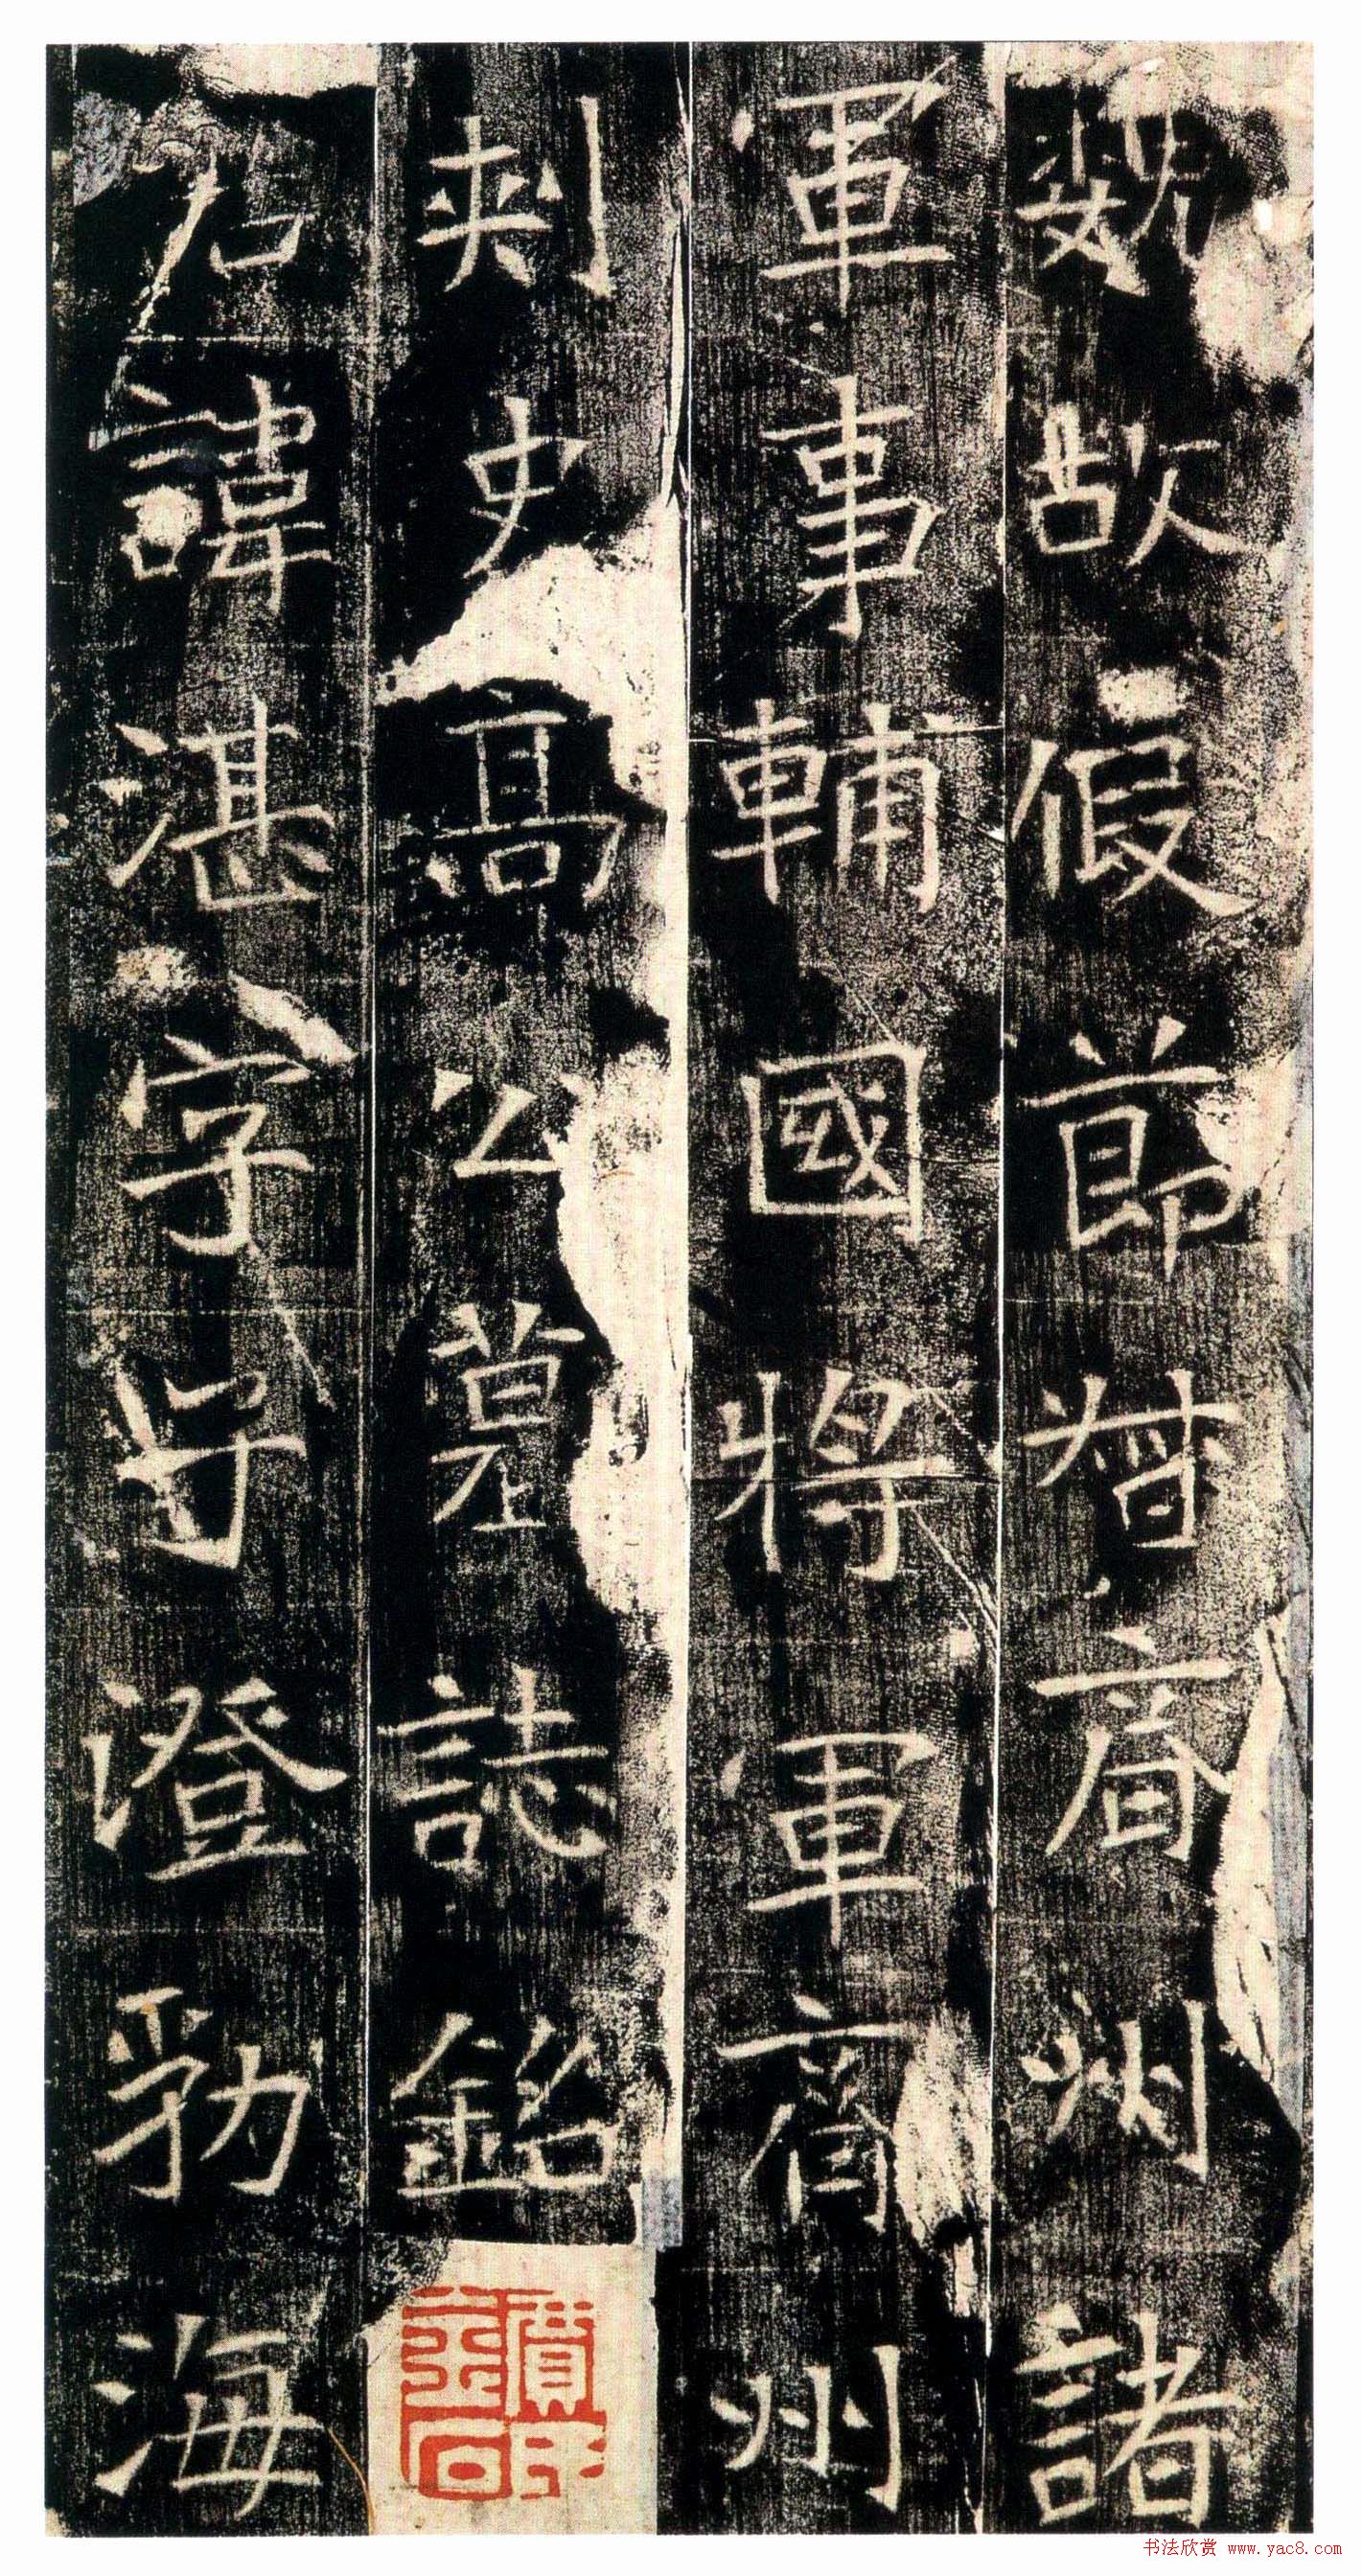 魏故假節督齊州諸
軍事輔國將軍齊州
刾史高公墓誌銘
君諱湛字子澄勃海
书法欣赏 www.yac8.com